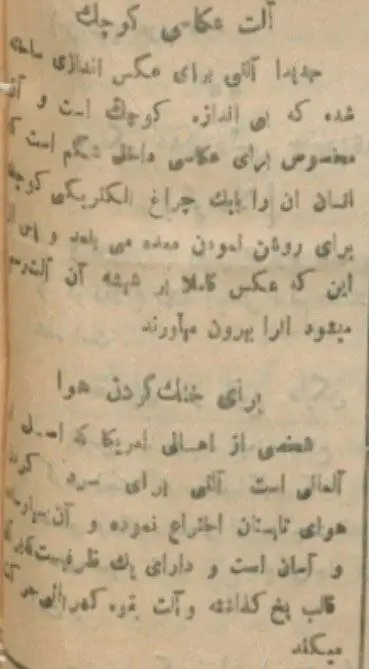 آلت عکاسی کوچك
جدیدا آلتی برای عکس اندازی ساخته
شده که بی اندازه کوچك است و آن
مخصوص برای عکاسی داخل شکم است که
انسان ان را بایك چراغ الکتریکی کوچك
برای روشن نمودن معده می بلعد و پس از
این که عکس کاملا بر شیشه آن
میشود انرا بیرون میآورند
برای خنك کردن هوا
شخصی از اهالی امریکا که اصل
آلمانی است آلتی برای سرد کردن
هوای تابستان اختراع نموده و آن بسیار ساده
و آسان است و دارای یك ظرفیست که
قالب یخ گذاشته و آلت بقوه کهربائی
میکند